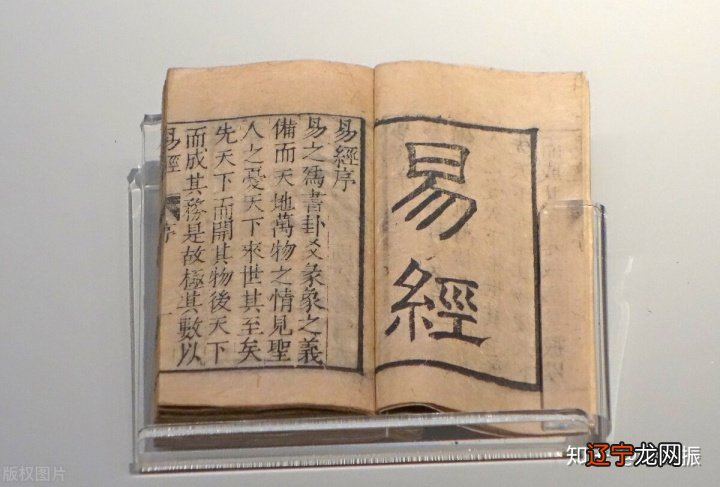 易經
易經序
易之爲書卦爻彖象之義
備而天地萬物之情見聖
人之憂天下來世其至矣
先天下而開其物後天下
而成其務是故極其數以
易經 序 一
版权图片
知辽宁龙网振